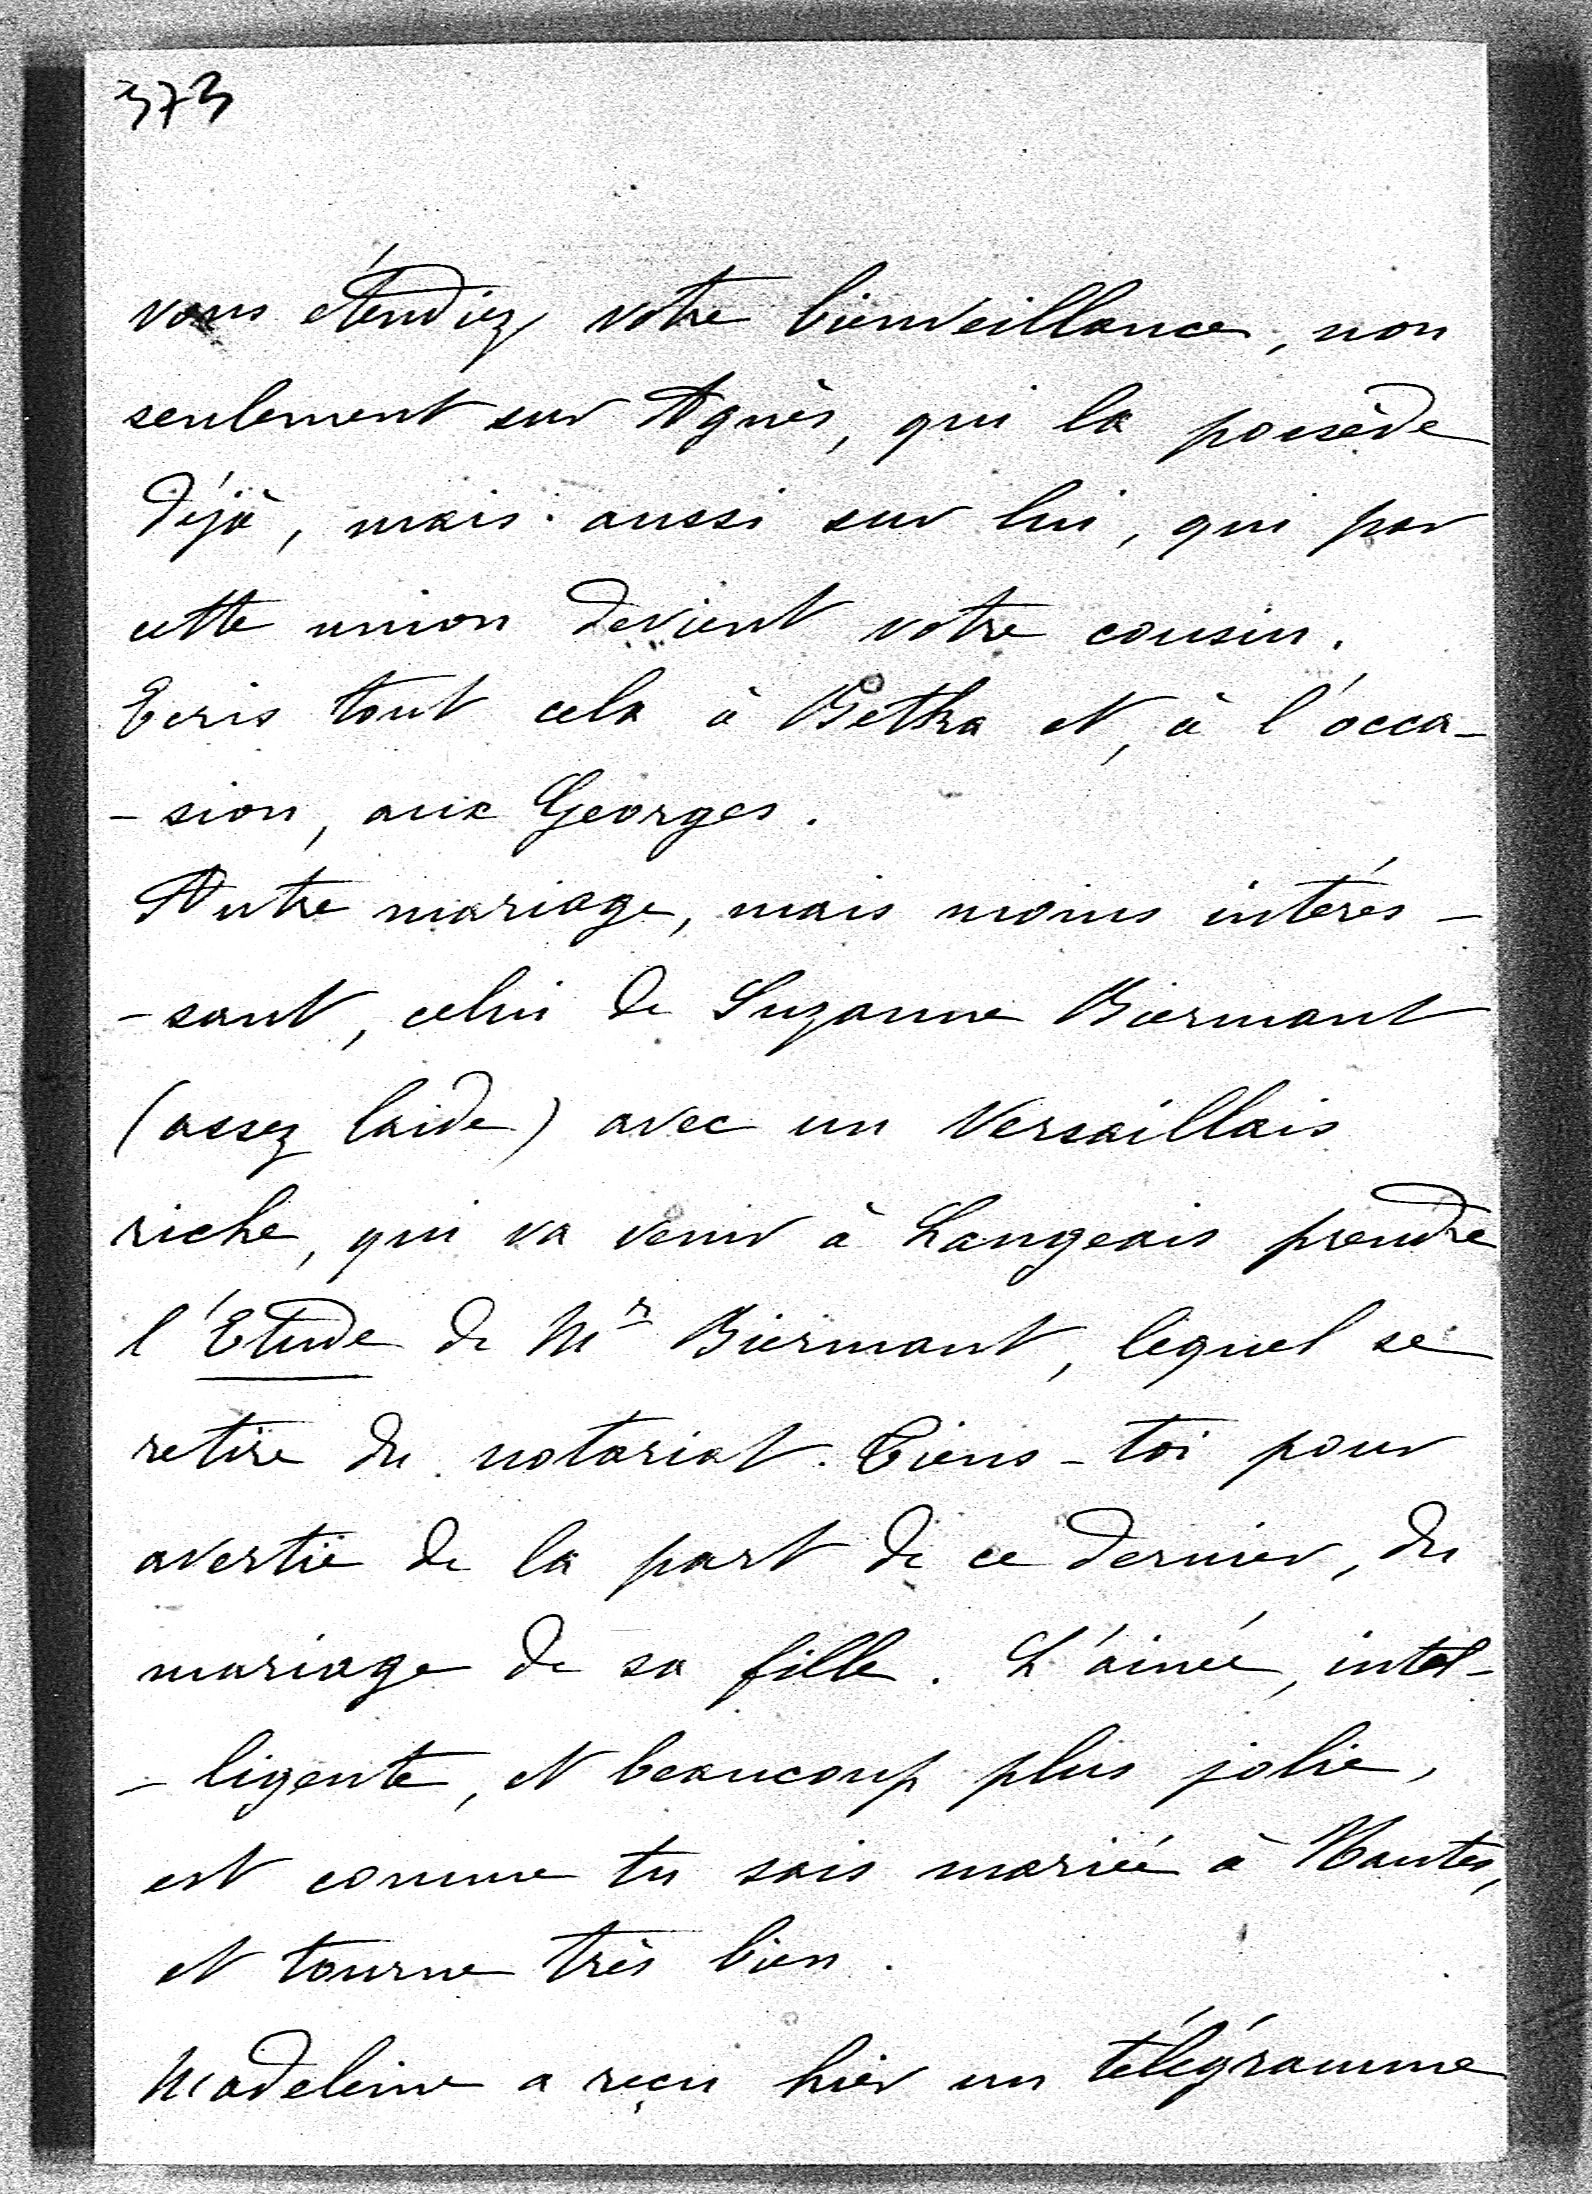 373
vous étendiez votre bienveillance, non
seulement sur Agnès, qui la possède
déjà, mais aussi sur lui, qui par
cette union devient votre cousin.
Ecris tout cela à Betka et, à l'occa-
-sion, aux Georges.
Autre mariage, mais moins intérés-
-sant, celui de Suzanne Biermant
(assez laide) avec un Versaillais
riche, qui va venir à Langeais prendre
l'Etude de Mr Biermant, lequel se
retire du notariat. Tiens-toi pour
avertie de la part de ce dernier, du
mariage de sa fille. L'ainée, intel-
-ligente, et beaucoup plus jolie,
est comme tu sais mariée à Nantes,
et tourne très bien.
Madeleine a reçu hier un télégramme